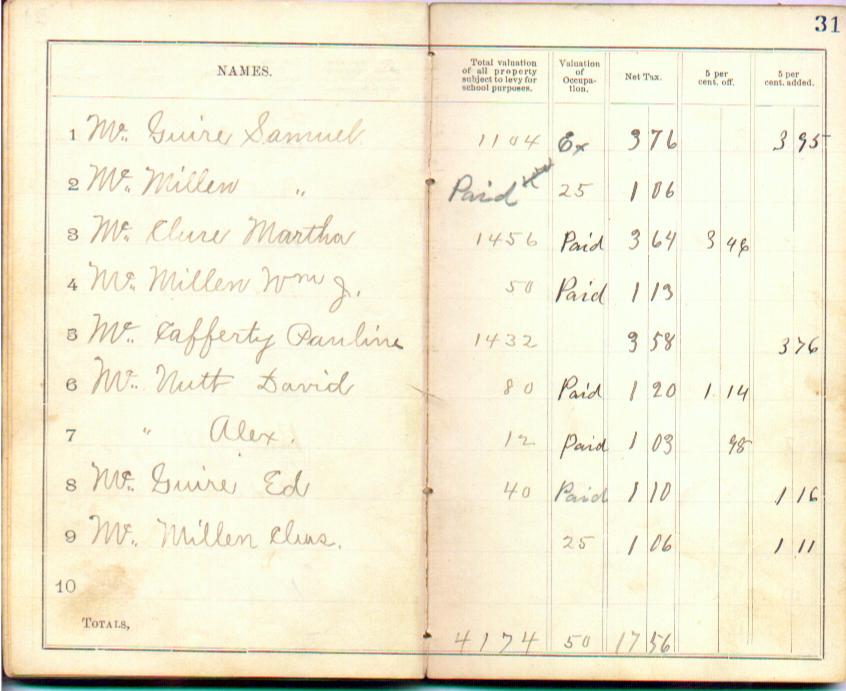 31
NAMES. Total valuation of all property subject to levy for school purposes. Valuation of Occupation. Net Tax. 5 per cent. off. 5 per cent. added.
1 Mc. Guire Samuel 1104 Ex 3 76 3 95
2 Mc. Millen " Paid 25 1 06
3 Mc. Clure Martha 1456 Paid 3 64 3 46
4 Mc. Millen Wm J. 50 Paid 1 13
5 Mc. Cafferty Pauline 1432 3 58 3 76
6 Mc. Nutt David 80 Paid 1 20 1 14
7 " Alex. 12 Paid 1 03 98
8 Mc. Guire Ed 40 Paid 1 10 1 16
9 Mc. Millen Chas. 25 1 06 1 11
10
TOTALS, 4174 50 17 56